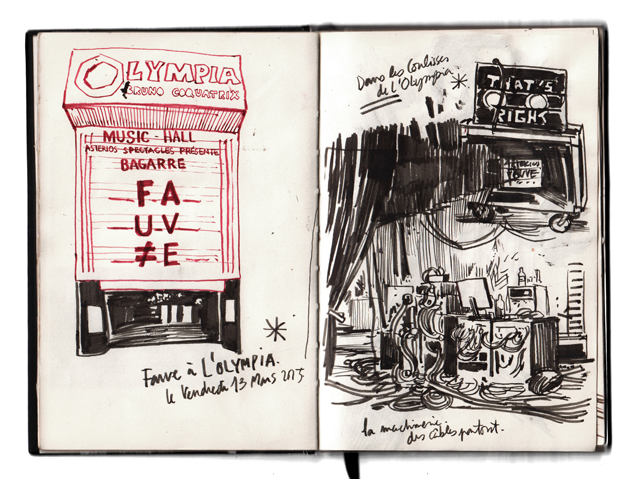 OLYMPIA
BRUNO COQUATRIX
MUSIC-HALL
ASTERIOS SPECTACLES PRÉSENTE
BAGARRE
FA
UV
≠E
Fauve à L'OLYMPIA.
le Vendredi 13 Mars 2015
Dans les Coulisses
de L'Olympia
THAT'S
RIGHT
ASTERIOS
FAUVE
la machinerie.
des câbles partout.